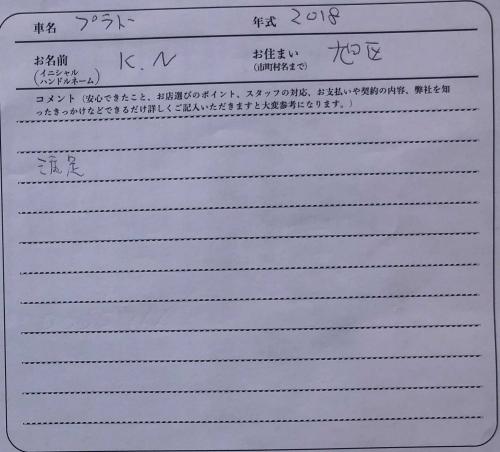 車名 プラドー 年式 2018
お名前 K.N お住まい 旭区
(イニシャル ハンドルネーム) (市町村名まで)
コメント（安心できたこと、お店選びのポイント、スタッフの対応、お支払いや契約の内容、弊社を知
ったきっかけなどできるだけ詳しくご記入いただきますと大変参考になります。）
満足